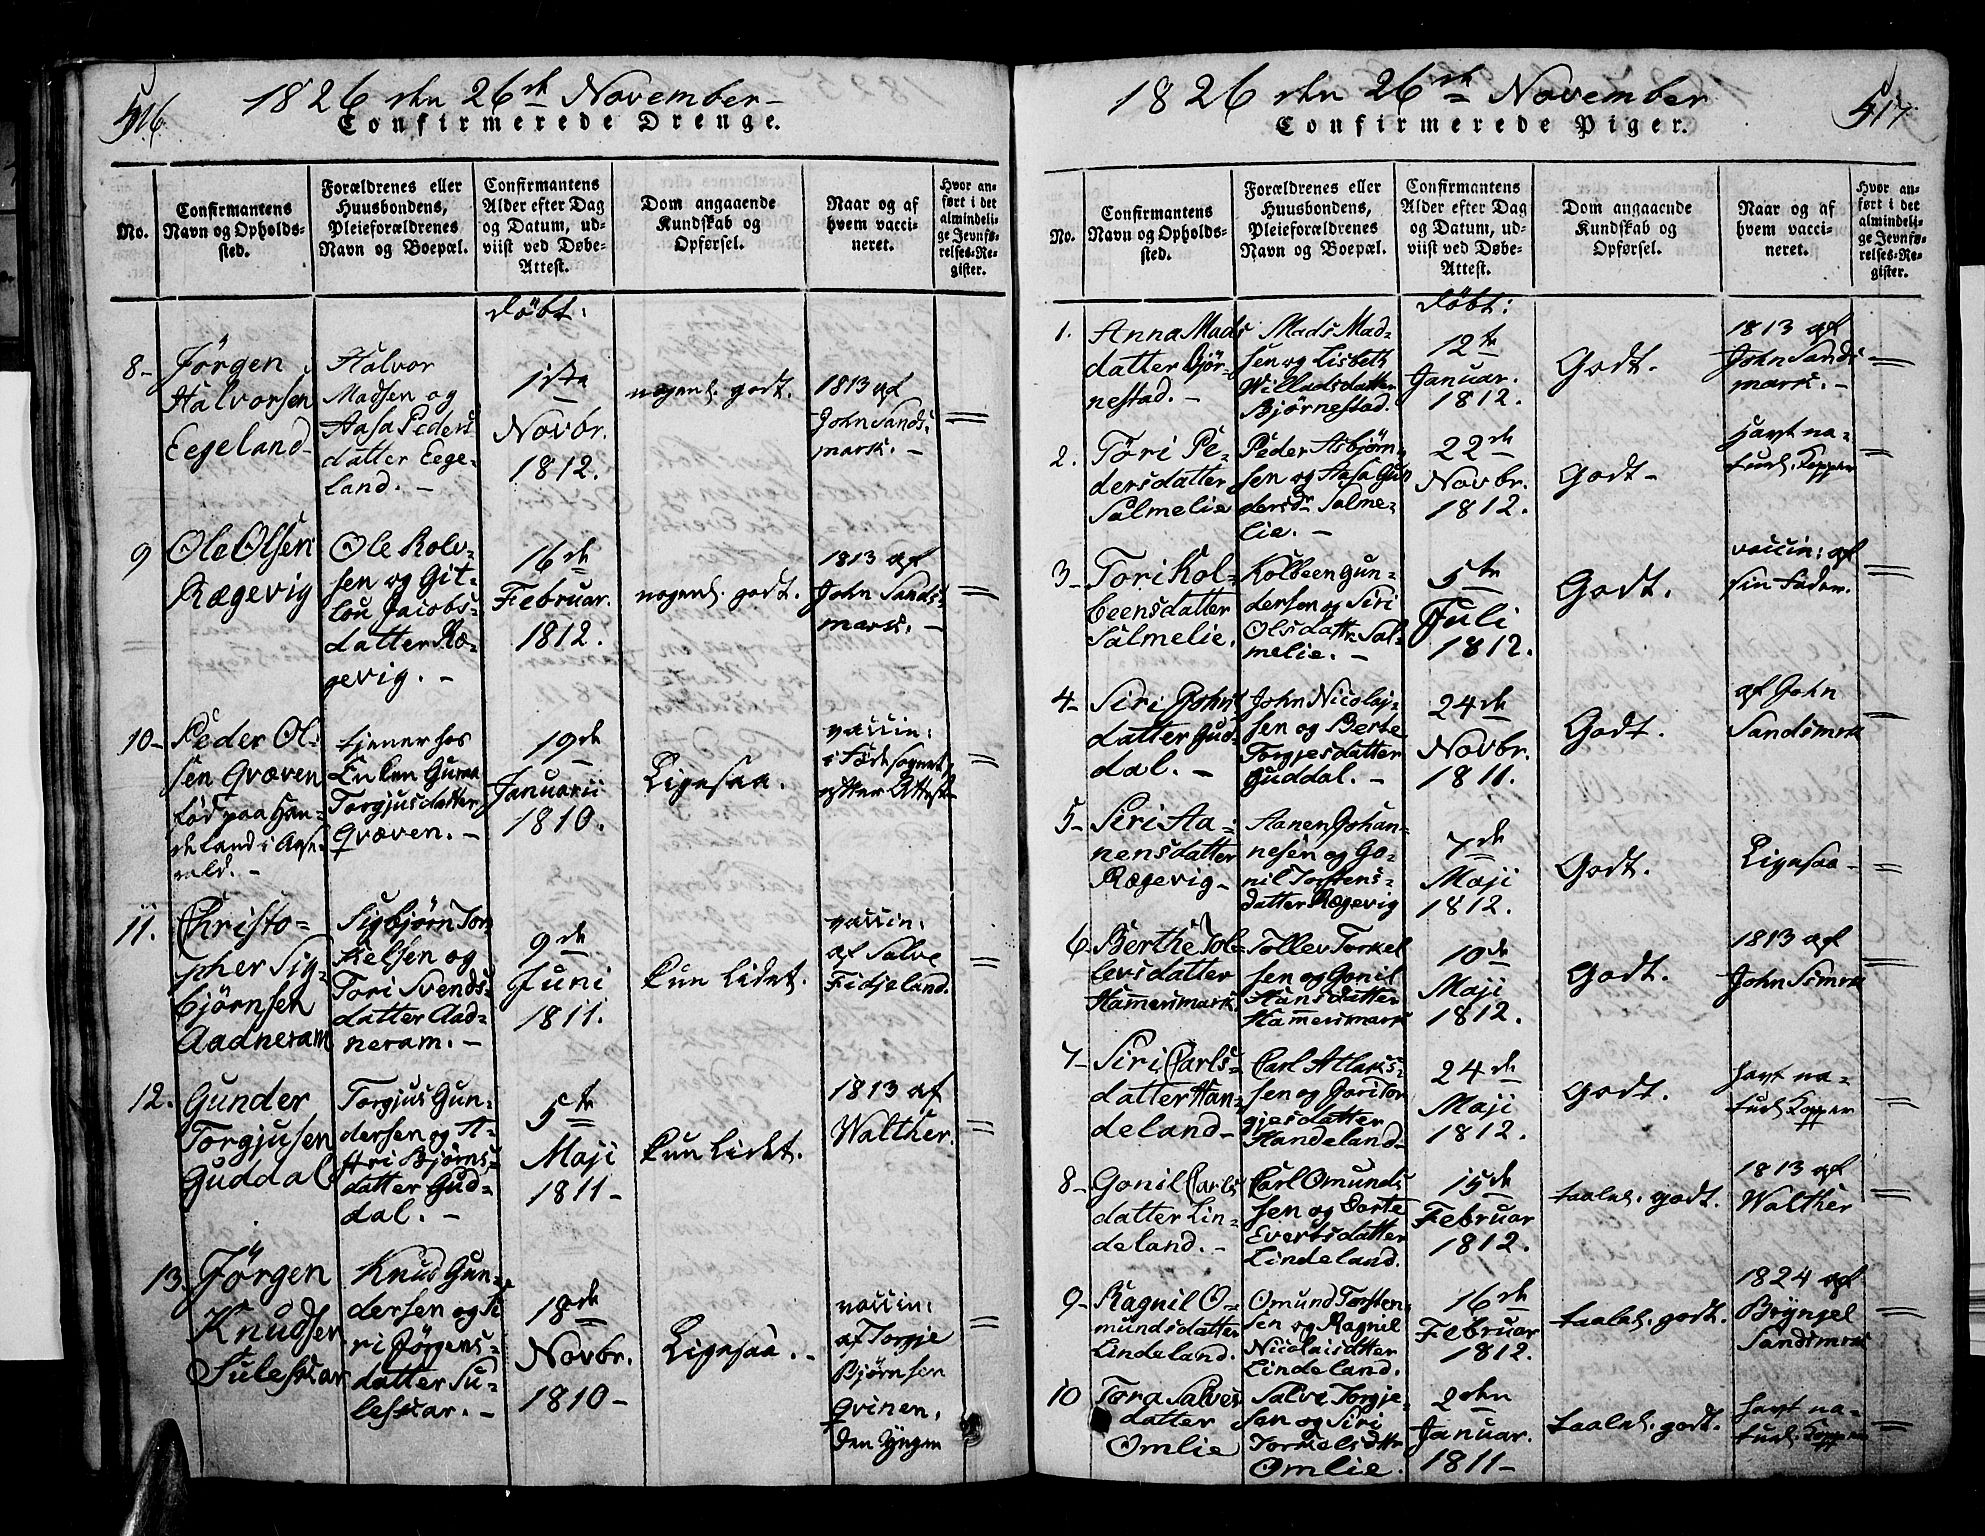 516
1826 den 26de November
Confirmerede Drenge.
No.
Confirmantens
Navn og Opholds-
sted.
Forældrenes eller
Huusbondens,
Pleieforældrenes
Navn og Boepæl.
Confirmantens
Alder efter Dag
og Datum, ud-
viist ved Døbe-
Attest.
Dom angaaende
Kundskab og
Opførsel.
Naar og af
hvem vacci-
neret.
Hvor an-
ført i det
almindeli-
ge Jevnfø-
relses-Re-
gister.
døbt:
8-
Jørgen
Halvorsen
Eegeland
Halvor
Madsen og
Aasa Peders
datter Eege-
land. -
1ste
Novbr.
1812.
nogenl. godt.
1813 af
John Sands-
mark. -
=
9
Ole Olsen
Rægevig
Ole Rolv-
sen og Git-
lou Jacobs-
datter Ræ-
gevig. -
16de
Februar.
1812.
nogenl. godt.
1813 af
John Sands-
mark. -
=
10-
Peder Ol-
sen Qvæven
fød paa Han-
deland i Aase-
rald. -
tjener hos
Enken Guroe
Torgjusdatter
Qvæven. -
19de
Januarii
1810.
Ligesaa.
vaccin:
i Fødesognet,
efter Attest
=
11.
Christo-
pher Sig-
bjørnsen
Aadneram
Sigbjørn Tor-
kelsen og
Tori Svends-
datter Aad-
neram. -
9de
Juni
1811.
kun lidet.
vaccin:
af Salve
Fidjeland.
=
12.
Gunder
Torgjusen
Guddal
Torgjus Gun-
dersen og A-
thri Bjørns-
datter Gud-
dal. -
5te
Maji
1811-
kun lidet.
1813 af
Walther.
=
13.
Jørgen
Knudsen
Suleskar
Knud Gun-
dersen og Si
ri Jørgens-
datter Su-
leskar. -
18de
Novbr.
1810-
Ligesaa. -
vaccin:
af Torgje
Bjørnsen
Qvinen,
den Yngre
=
517
1826 den 26de November
Confirmerede Piger.
No.
Confirmantens
Navn og Opholds-
sted.
Forældrenes eller
Huusbondens,
Pleieforældrenes
Navn og Boepæl.
Confirmantens
Alder efter Dag
og Datum, ud-
viist ved Døbe-
Attest.
Dom angaaende
Kundskab og
Opførsel.
Naar og af
hvem vacci-
neret.
Hvor an-
ført i det
almindeli-
ge Jevnfø-
relses-Re-
gister.
døbt:
1.
Anna Mads
datter Bjør-
nestad. -
Mads Mad-
sen og Lisbeth
Willadsdatter
Bjørnestad.
12te
Januar.
1812.
Godt.
1813 af
John Sands
mark. -
=
2.
Tori Pe-
dersdatter
Salmelie
Peder Asbjørn-
sen og Aasa Gun
dersdr Salme-
lie. -
22de
Novbr.
1812.
Godt-
havt na-
turl. Kopper
3-
Tori Kol-
beensdatter
Salmelie.
Kolbeen Gun-
dersen og Siri
Olsdattr Sal-
melie. -
5te
Juli
1812.
Godt.
vaccin: af
sin Fader.
=
4-
Siri Johns
datter Gud-
dal. -
John Nicolaj-
sen og Berte
Torgjesdatter
Guddal. -
24de
Novbr.
1811.
Godt.
af John
Sandsmrk
=
5-
Siri Aa-
nensdatter
Rægevig-
Aanen Johan-
nesen og Go-
nil Torstens-
datter Rægevig
7de
Maji
1812.
Godt.
Ligesaa-
=
6
Berthe Tol-
levsdatter
Hammersmark.
Tollev Torkel
sen og Gonil
Hansdatter
Hammersmark
10de
Maji
1812.
Godt.
1813 af
John Smrk
=
7-
Siri Carls-
datter Han-
deland-
Carl Atlaks-
sen og Gori Tor
gjesdatter
Handeland-
24de
Maji
1812.
Godt.
havt na-
turl. Kopper
=
8-
Gonil Carls
datter Lin-
deland. -
Carl Omunds
sen og Dorte
Evertsdatter
Lindeland.
15de
Februar
1812.
taalel. godt.
1813 af
Walther
=
9-
Ragnil O-
mundsdatter
Lindeland.
Omund Torsten-
sen og Ragnil
Nicolaisdtter
Lindeland.
16de
Februar
1812.
taalel. godt.
1824 af
Brynjel
Sandsmrk
=
10
Tora Salves
datter
Omlie
Salve Torgje-
sen og Siri
Torkelsdttr
Omlie.
2den
Januar.
1811-
taalel. godt.
havt na-
turl. Kopper
=